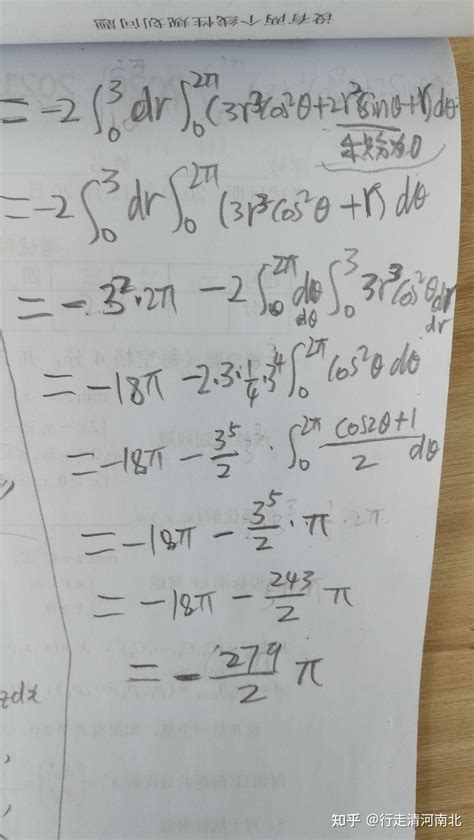 没有两个线性规划问题
= -2 ∫₀³ dr ∫₀^{2π} (3r³cos²θ+2r²sinθ+r)dθ
积分为0
= -2 ∫₀³ dr ∫₀^{2π} (3r³cos²θ+r) dθ
= -3²·2π -2 ∫₀^{2π} dθ ∫₀³ 3r³cos²θdr
dθ dr
= -18π -2·3·1/4·3⁴ ∫₀^{2π} cos²θ dθ
= -18π - 3⁵/2 · ∫₀^{2π} (cos2θ+1)/2 dθ
= -18π - 3⁵/2 · π
= -18π - 243/2 π
= - 279/2 π
zdx
知乎 @行走清河南北